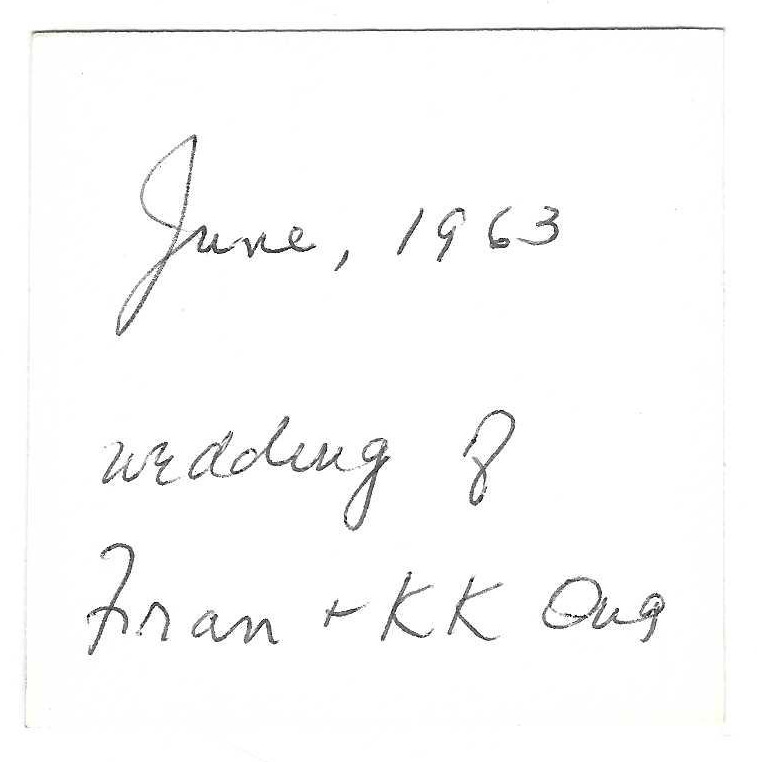 June, 1963
wedding of
Fran + KK Ong